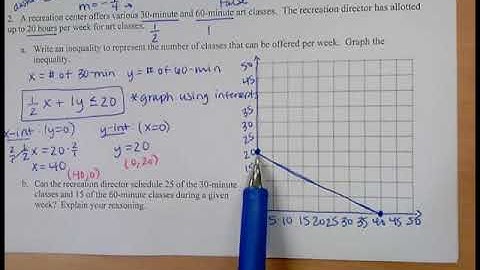 m = -4 False
2. A recreation center offers various 30-minute and 60-minute art classes. The recreation director has allotted
up to 20 hours per week for art classes. 1/2 1
a. Write an inequality to represent the number of classes that can be offered per week. Graph the
inequality.
x = # of 30-min y = # of 60-min
1/2 x + 1y ≤ 20 *graph using intercepts
x-int: (y=0) y-int: (x=0)
2/1 · 1/2 x = 20 · 2/1 y = 20
x = 40 (0,20)
(40,0)
b. Can the recreation director schedule 25 of the 30-minute
classes and 15 of the 60-minute classes during a given
week? Explain your reasoning.
50
45
40
35
30
25
20
15
5 10 15 20 25 30 35 40 45 50